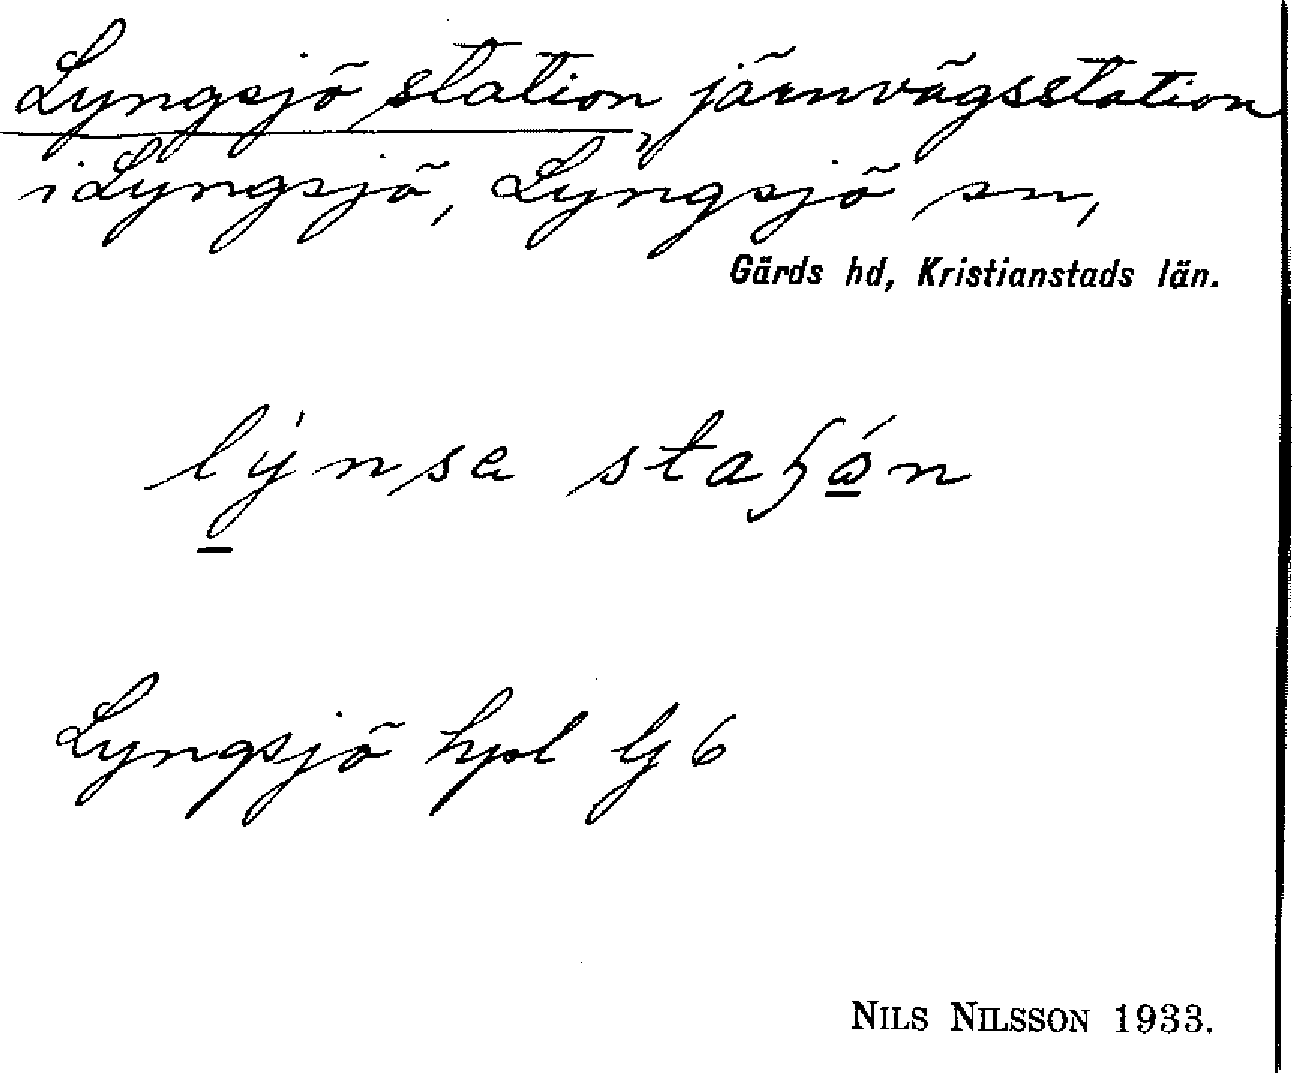 Lyngsjö station, järnvägsstation
i Lyngsjö, Lyngsjö sn,
Gärds hd, Kristianstads län.
lýnsa staɧón
Lyngsjö hpl G 6
NILS NILSSON 1933.